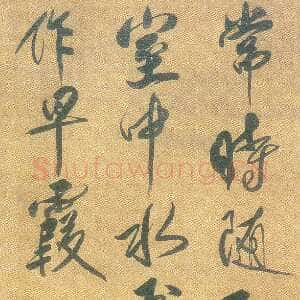 常時随
室中水
作早霞
Shufawang